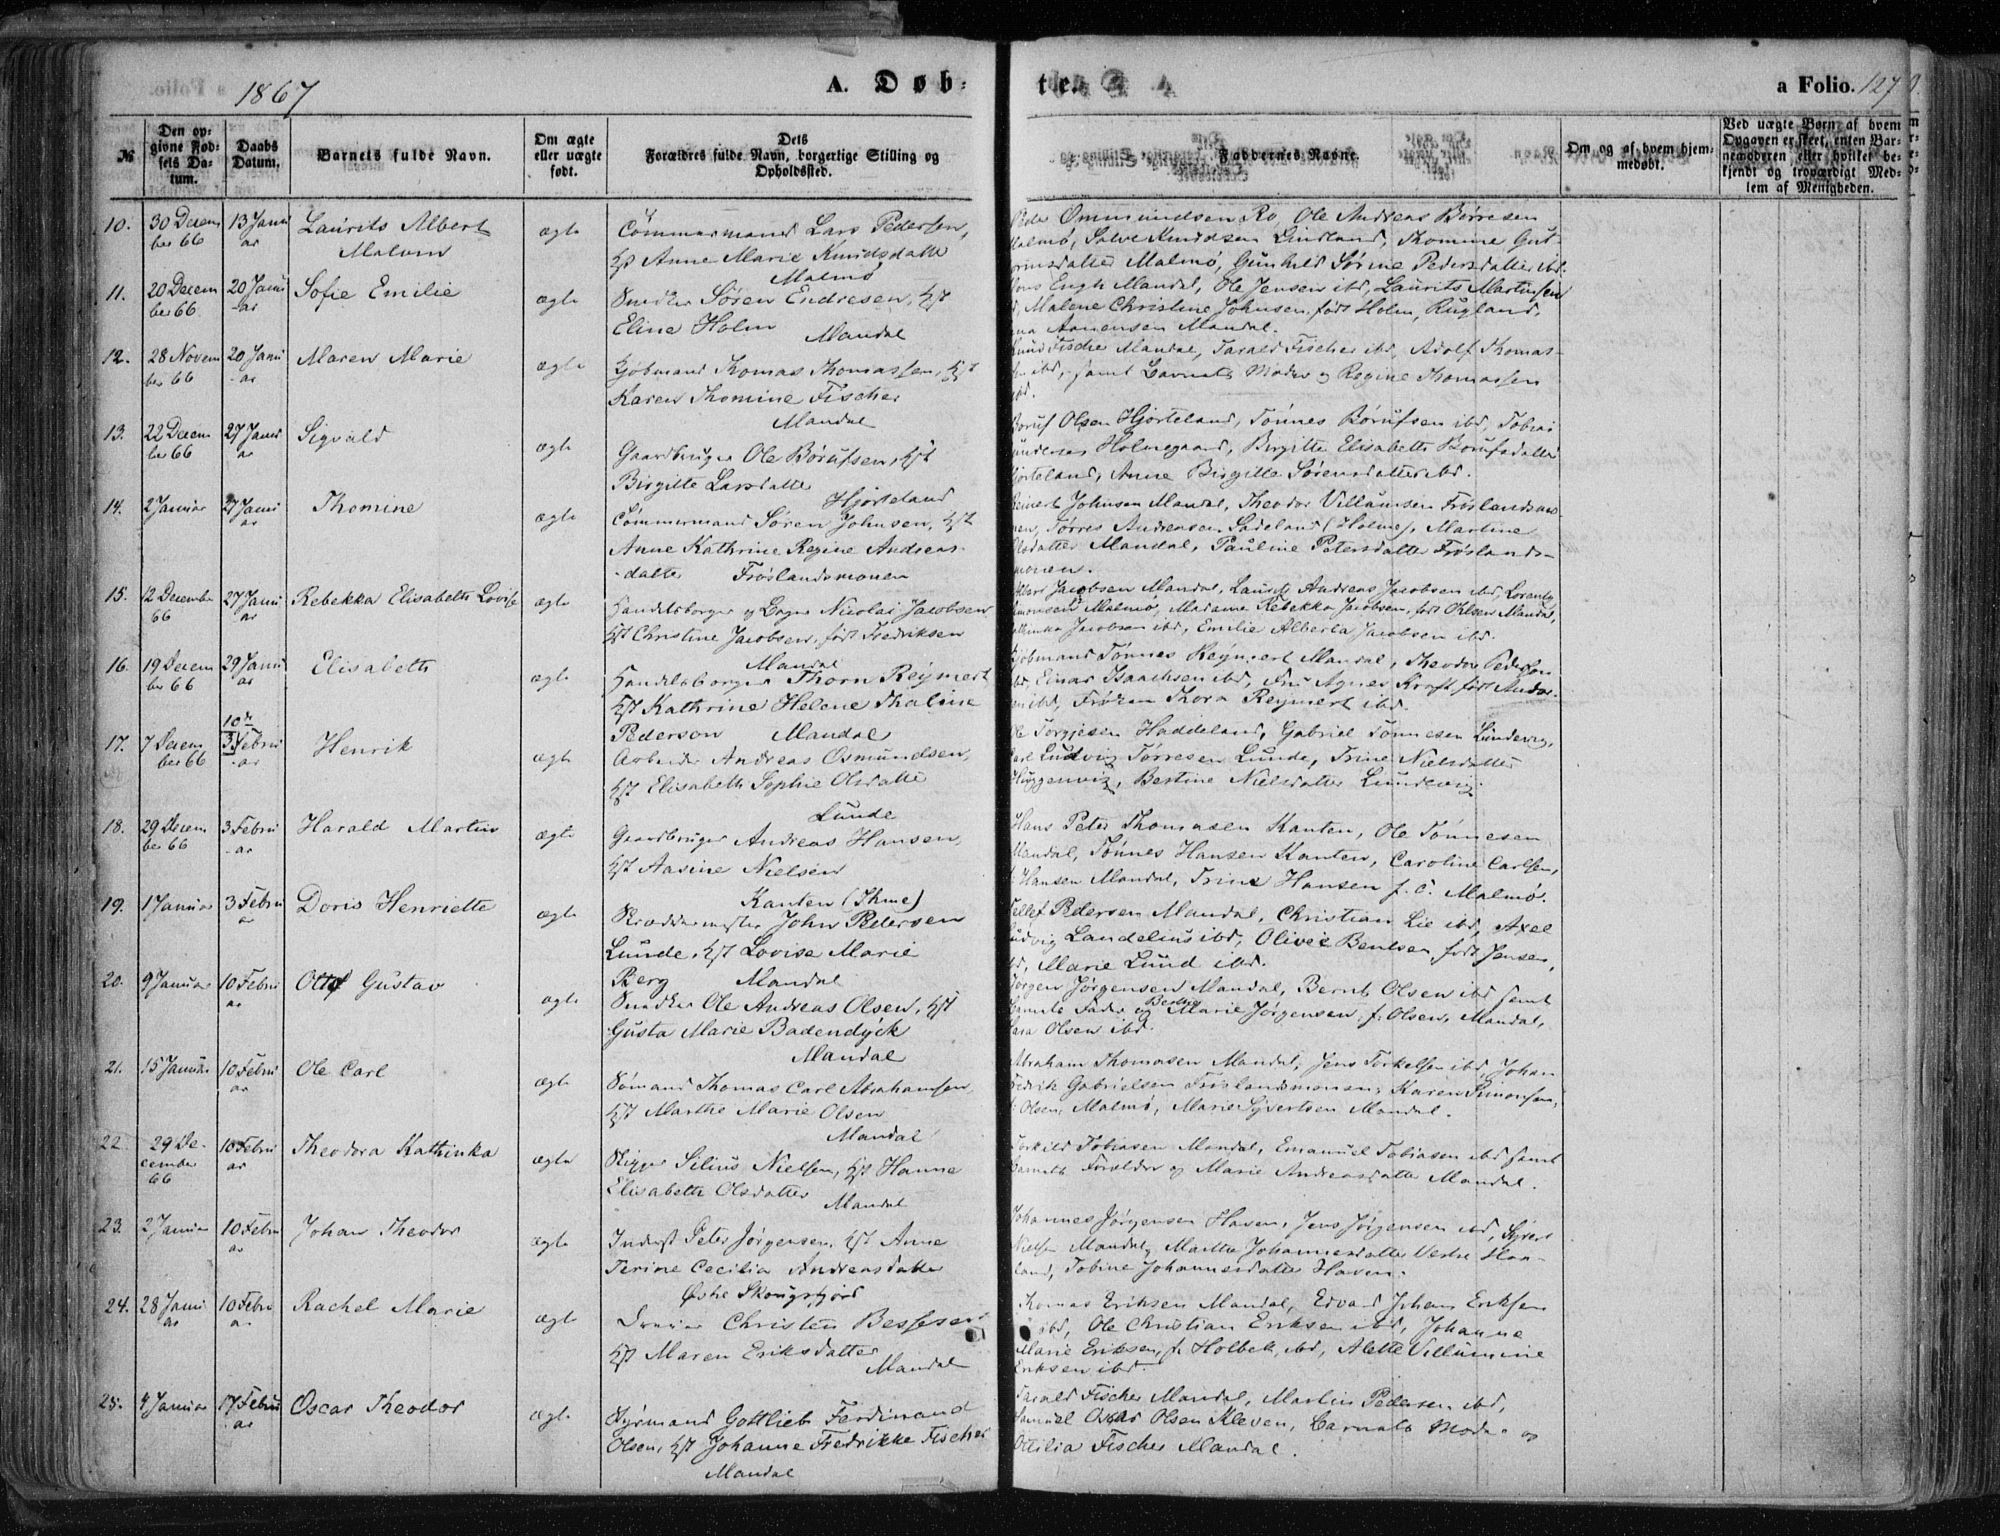 1867
A. Døb-
te.
a Folio. 127
№
Den op-
givne Fød-
sels Da-
tum.
Daabs
Datum.
Barnets fulde Navn.
Om ægte
eller uægte
født.
Dets
Forældres fulde Navn, borgerlige Stilling og
Opholdssted.
Faddernes Navne.
Om og af hvem hjem-
medøbt.
Ved uægte Børn af hvem
Opgaven er skeet, enten Bar-
nemoderen eller hvilket be-
kjendt og troværdigt Med-
lem af Menigheden.
10. 30 Decem 13 Janu Laurits Albert ægte Tømmermand Lars Pedersen,
ber 66 ar Malvin hst Anne Marie Knudsdatter
Malmø
Ommundsen Ro, Ole Andreas Børresen
Malmø, Salve Knudsen Lindland, Thomine Gut-
ormsdatter Malmø, Gunhild Sørine Pedersdatter ibd.
11. 20 Decem 20 Janu Sofie Emilie ægte Snedker Søren Endresen, hst
ber 66 ar Eline Holm
Mandal
Engh Mandal, Ole Jensen ibd, Laurits Martinsen
Malene Christine Johnsen født Holm, Rugland,
Aanensen Mandal.
12. 28 Novem 20 Janu Maren Marie ægte Kjøbmand Thomas Thomassen, hst
ber 66 ar Karen Thomine Fischer
Mandal
Knud Fischer Mandal, Tarald Fischer ibd, Adolf Thomas-
sen ibd, samt Barnets Moder og Regine Thomassen
ibd.
13. 22 Decem 27 Janu Sigvald ægte Gaardbruger Ole Børufsen, hst
ber 66 ar Birgitte Larsdatter
Hjorteland
Boruf Olsen Hjorteland, Tønnes Børufsen ibd, Tobias
Gundersen Holmegaard, Birgitte Elisabeth Borufsdatter
Hjorteland, Anne Birgitte Sørensdatter ibd.
14. 2 Januar 27 Janu Thomine ægte Tømmermand Søren Johnsen, hst
ar Anne Kathrine Regine Andreas-
datter Frøslandsmonen
Reinert Johnsen Mandal, Theodor Villumsen Frøslandsmo-
nen, Tørres Andreasen Sadeland (Holme), Martine
Mandal, Pauline Petersdatter Frøslands-
monen.
15. 12 Decembe 27 Janu Rebekka Elisabeth Lovise ægte Handelsborger og Bager Nicolai Jacobsen
66 ar hst Christine Jacobsen, født Fredriksen
Mandal
Jacobsen Mandal, Laurits Andreas Jacobsen ibd, Lorents
Simonsen Malmø, Madame Rebekka Jacobsen, født Olsen Mandal,
Jacobsen ibd, Emilie Alberta Jacobsen ibd.
16. 19 Decem 29 Janu Elisabeth ægte Handelsborger Thorn Reymert
ber 66 ar hst Kathrine Helene Thaline
Pederson Mandal
Kjøbmand Tønnes Reymert Mandal, Theodor Pederson
ibd, Einar Isaachsen ibd, Fru Agnes Kraft, født Ander-
sen ibd, Frøken Thora Reymert ibd.
17. 7 Decem 10de 3 Febru Henrik ægte Arbeider Andreas Osmundsen,
ber 66 ar hst Elisabeth Sophie Olsdatter
Lunde
Ole Torgjesen Haddeland, Gabriel Tønnesen Lundevig,
Carl Ludvig Tørresen Lunde, Trine Nielsdatter
Bertine Nielsdatter Lundevig.
18. 29 Decem 3 Febru Harald Martin ægte Gaardbruger Andreas Hansen,
ber 66 ar hst Aasine Nielsen
Kanten (Ihme)
Hans Peter Thomasen Kanten, Ole Tønnesen
Mandal, Tønnes Hansen Kanten, Caroline Carlsen,
f. Hansen Mandal, Trine Hansen f. C. Malmø.
19. 1 Januar 3 Febru Doris Henriette ægte Skræddermester John Pedersen
ar Lunde, hst Lovise Marie
Berg Mandal
Tellef Pedersen Mandal, Christian Lie ibd, Axel
Ludvig Landelius ibd, Olivie Bentsen, født Jensen,
ibd, Marie Lund ibd.
20. 9 Januar 10 Febru Otto Gustav ægte Snedker Ole Andreas Olsen, hst
ar Gusta Marie Badendyck
Mandal
Jørgen Jørgensen Mandal, Bernt Olsen ibd samt
Barnets Fader og Berthe Marie Jørgensen f. Olsen, Mandal,
Olsen ibd.
21. 15 Januar 10 Febru Ole Carl ægte Sømand Thomas Carl Abrahamsen,
ar hst Marthe Marie Olsen
Mandal
Abraham Thomasen Mandal, Jens Terkelsen ibd, Johan
Fredrik Gabrielsen Frøslandsmonen, Karen Simonsen,
f. Olsen, Malmø, Marie Syvertsen Mandal.
22. 29 De- 10 Febru Theodora Kathinka ægte Rigger Silius Nielsen, hst Hanne
cember ar Elisabeth Olsdatter
66 Mandal
Torkild Tobiasen Mandal, Emanuel Tobiasen ibd samt
Barnets Forældre og Marie Andreasdatter Mandal.
23. 2 Januar 10 Febru Johan Theodor ægte Inderst Peter Jørgensen, hst Anne
ar Terine Cecilia Andreasdatter
Østre Skougsfjord
Johannes Jørgensen Haven, Jens Jørgensen ibd, Syvert
Nielsen Mandal, Marthe Johannesdatter Vestre Haa-
land, Tobine Johannesdatter Haven.
24. 28 Janu 10 Febru Rachel Marie ægte Christen Bessesen
ar a. hst Maren Eriksdatter
Mandal
Thomas Eriksen Mandal, Edvard Johan Eriksen
ibd, Ole Christian Eriksen ibd, Johanne
Marie Eriksen, f. Holbek, ibd, Alette Villumine
Eriksen ibd.
25. 4 Januar 17 Febru Oscar Theodor ægte Styrmand Gottlieb Ferdinand
ar Olsen, hst Johanne Fredrikke Fischer
Mandal
Tarald Fischer Mandal, Martin Pedersen ibd,
Samuel Oscar Olsen Kleven, Barnets Moder og
Ottilia Fischer Mandal.